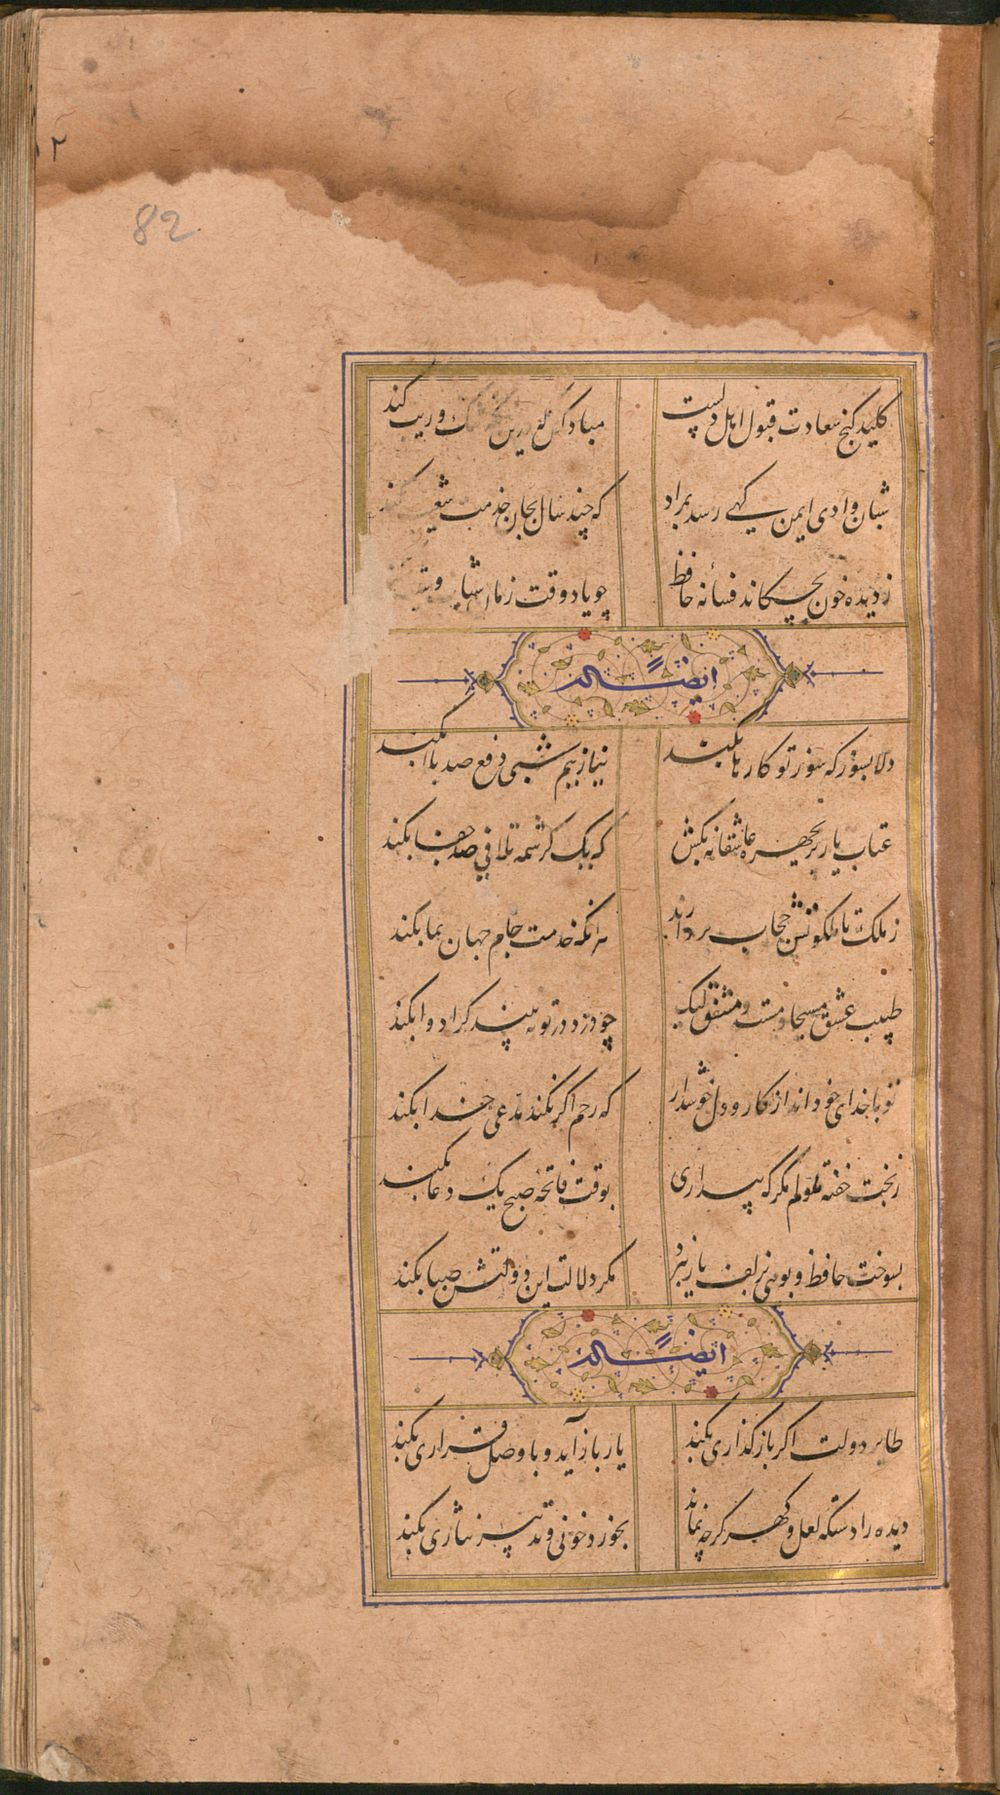 ۱۲
82
کلید کنج سعادت قبول اهل دلست مباد کس که درین نکته شک و ریب کند
شبان وادی ایمن کهی رسد بمراد که چند سال بجان خدمت شعیب کند
ز دیده خون بچکاند فسانهٔ حافظ چو یاد وقت زمان شباب و شیب
ایضاً له
دلا بسوز که سوز تو کارها بکند نیاز نیم شبی دفع صد بلا بکند
عتاب یار پریچهره عاشقانه بکش که یک کرشمه تلافی صد جفا بکند
ز ملک تا ملکوتش حجاب بردارند هر انکه خدمت جام جهان نما بکند
طبیب عشق مسیحا دمست و مشفق لیک چو درد در تو نه بیند کرا دوا بکند
تو با خدای خود انداز کار و دل خوشدار که رحم اکر نکند مدعی خدا بکند
ز بخت خفته ملولم مکر که بیداری بوقت فاتحه صبح یک دعا بکند
بسوخت حافظ و بویی ز زلف یار نبرد مکر دلالت این دولتش صبا بکند
ایضاً له
طایر دولت اکر باز کذاری بکند یار باز آید و با وصل قراری بکند
دیده را دستکه لعل و کهر کرچه نماند بخورد خونی و تدبیر نثاری بکند